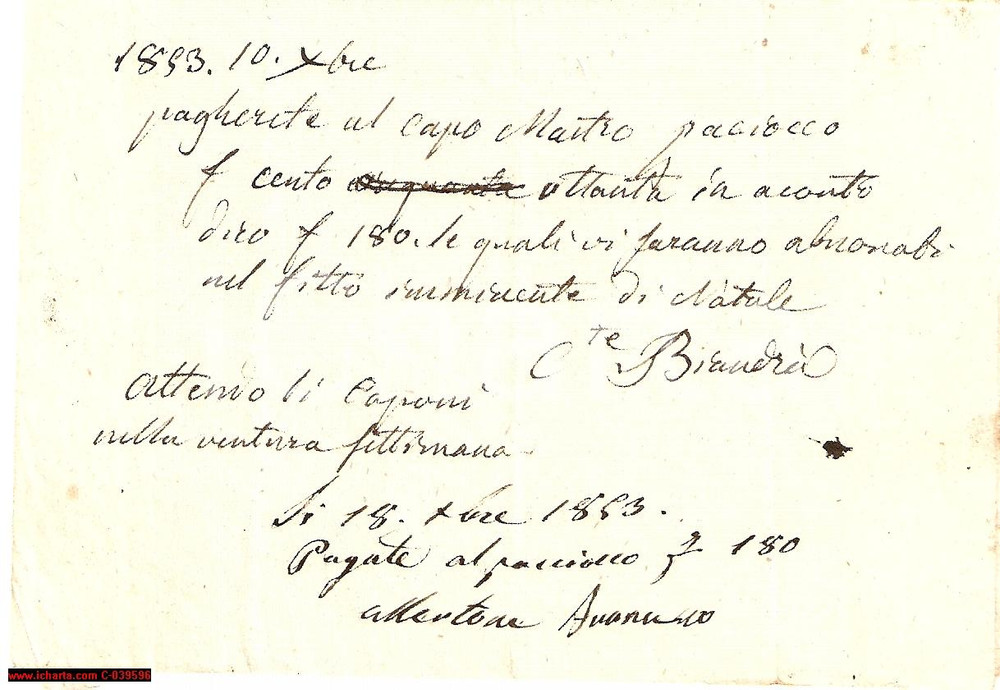 1853. 10. Xbre
pagherete al Capo Mastro paciocco
f cento cinquanta ottanta in aconto
dico f 180. le quali vi saranno abuonati
nel fitto imminente di Natale
Cte Biandrà
Attendo li Caponi
nella ventura settimana
Li 18. Xbre 1853.
Pagate al paciocco f 180